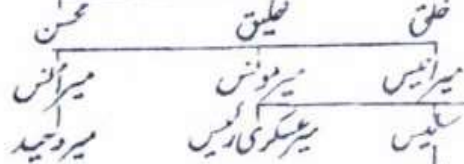 خلق خلیق محسن
میر انیس میر مونس میر انس
سلیس میر عسکری رئیس میر وحید